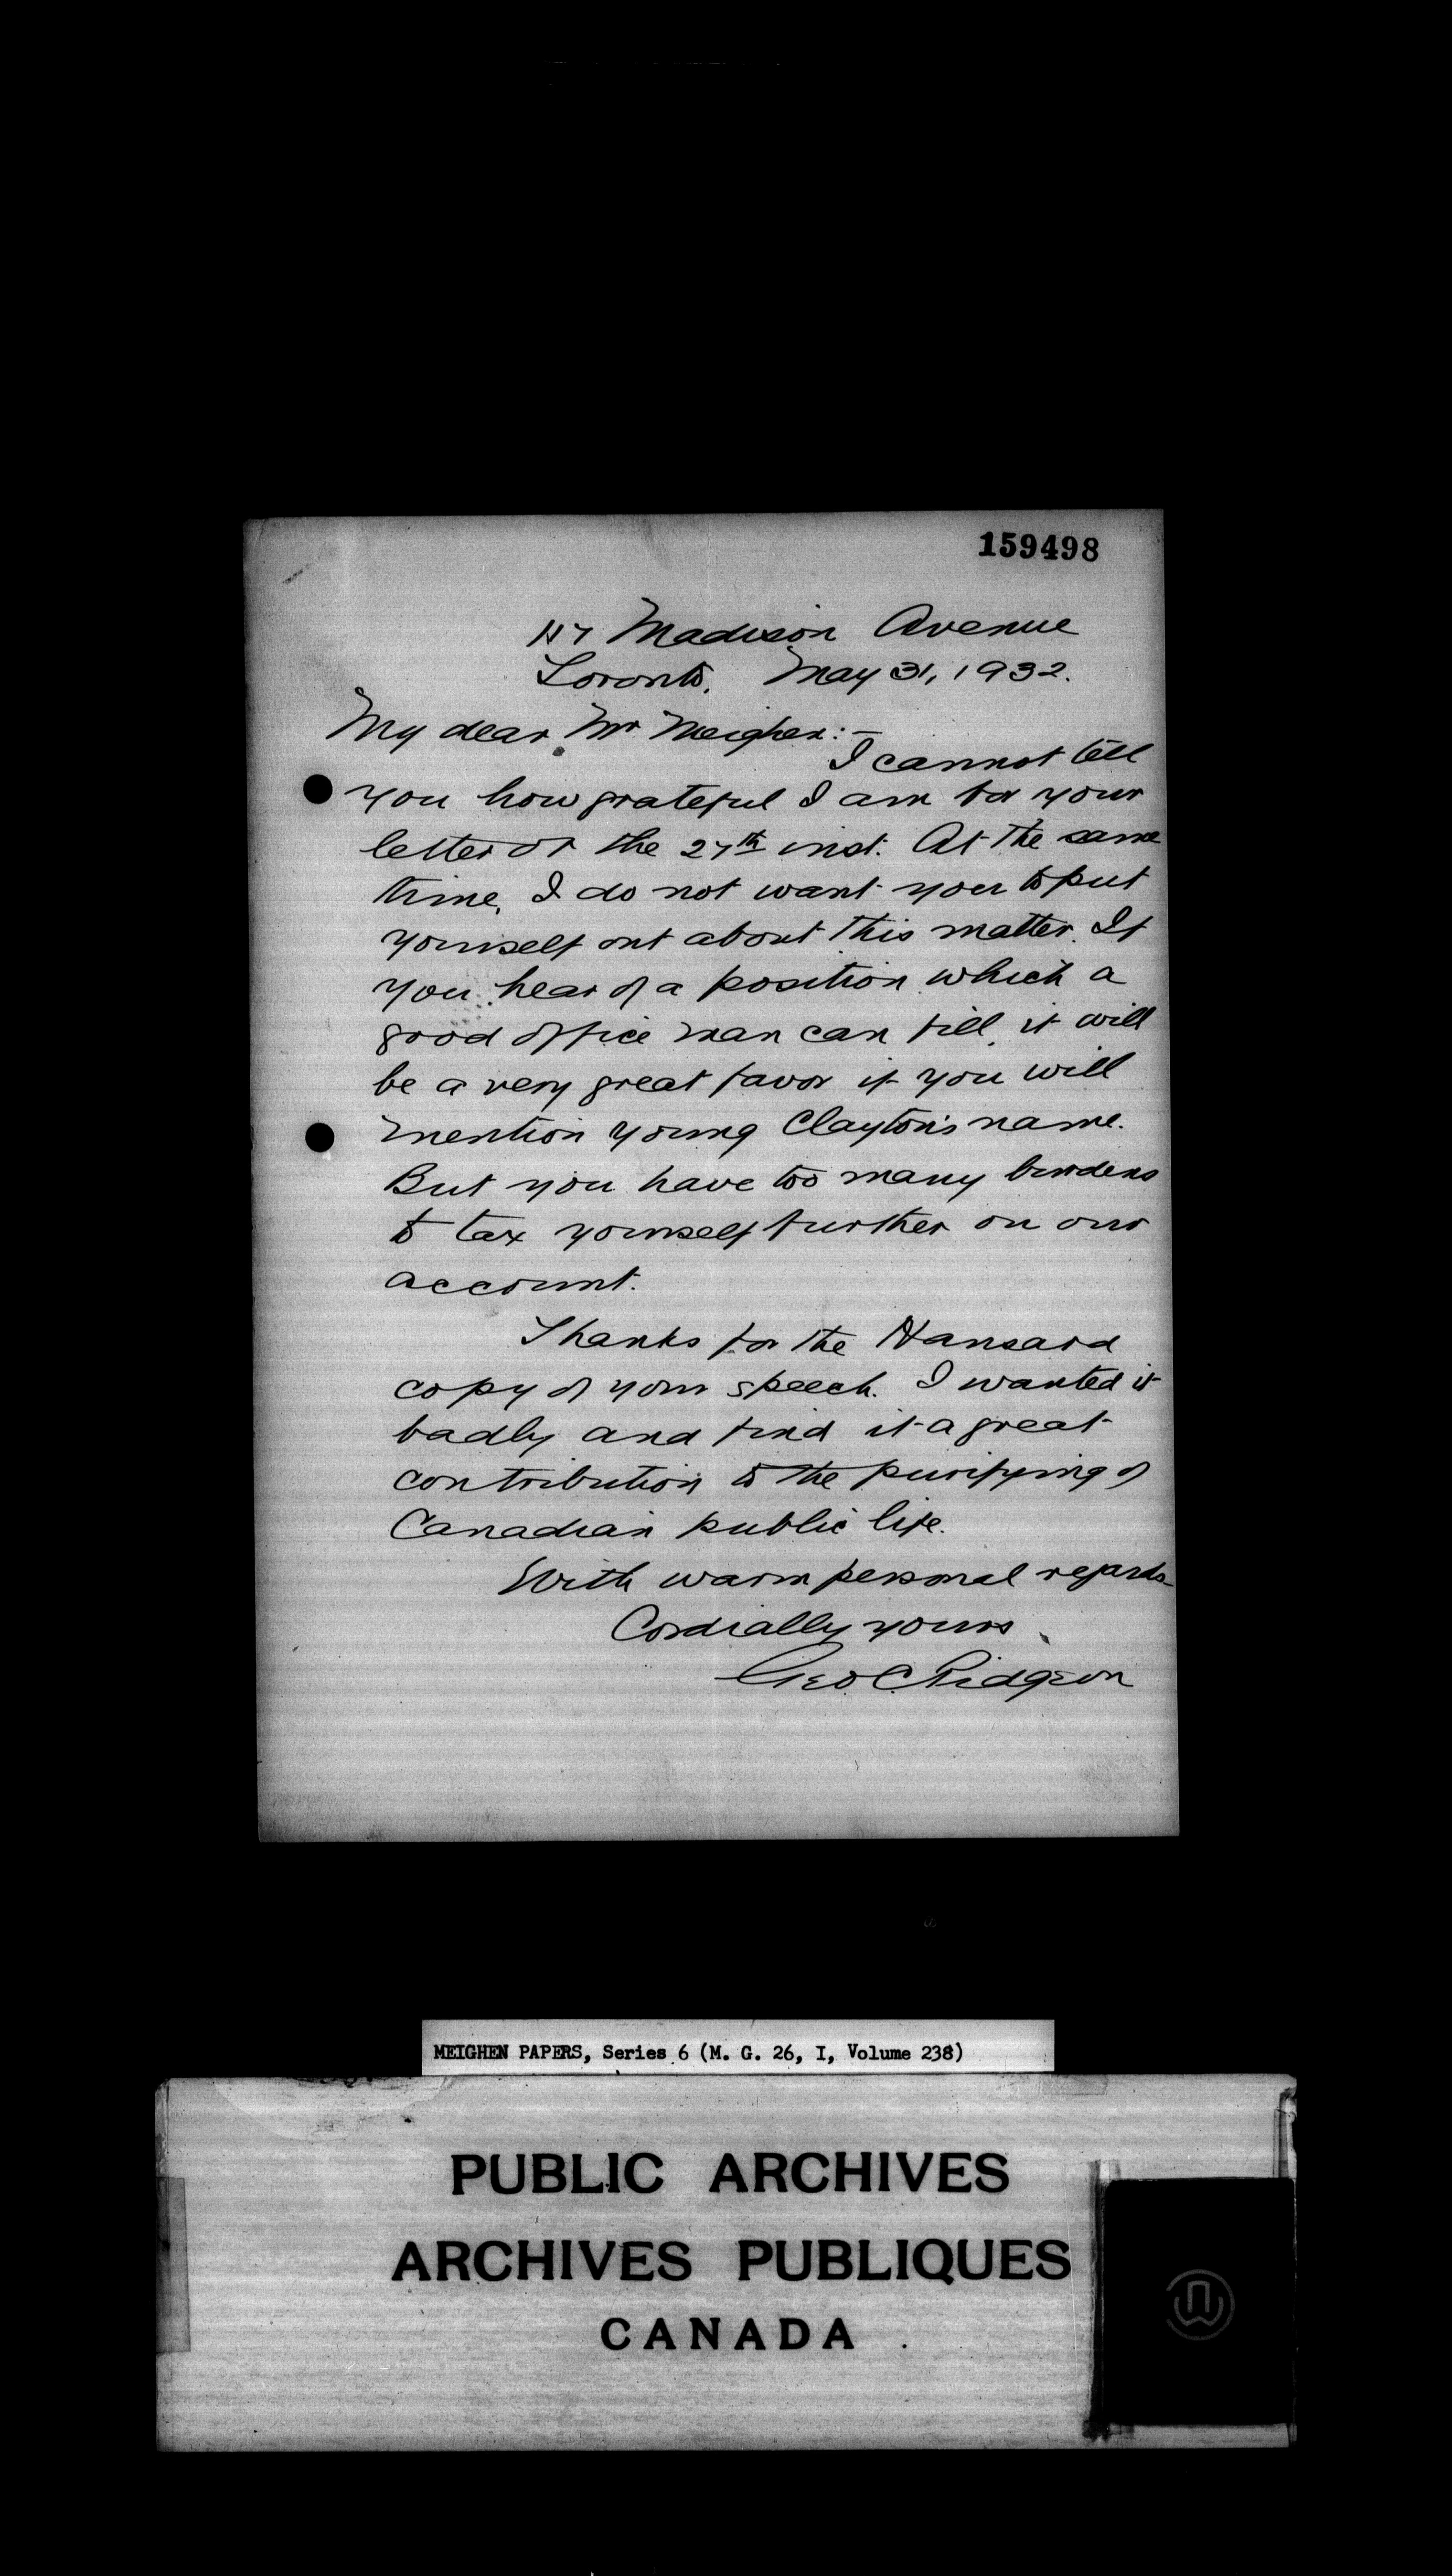 159498
Madison Avenue
Toronto, May 31, 1932.
My dear Mr Meighen:—
I cannot tell
you how grateful I am for your
letter of the 27th inst. At the same
time, I do not want you to put
yourself out about this matter. If
you hear of a position which a
good office man can fill, it will
be a very great favor if you will
mention young Clayton's name.
But you have too many burdens
to tax yourself further on our
account.
Thanks for the Hansard
copy of your speech. I wanted it
badly and find it a great
contribution to the purifying of
Canadian public life.
With warm personal regards
Cordially yours
Geo. C. Pidgeon
MEIGHEN PAPERS, Series 6 (M. G. 26, I, Volume 238)
PUBLIC ARCHIVES
ARCHIVES PUBLIQUES
CANADA